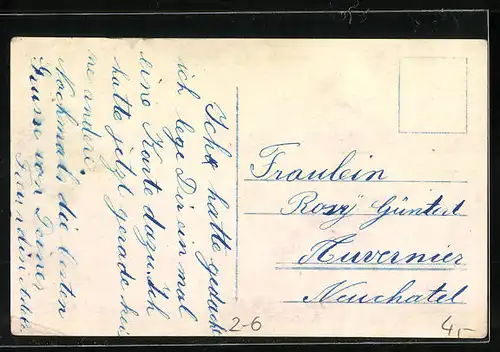 Ich hatte gedacht
ich lege Dir ein mal
eine Karte dazu. Ich
hatte jetzt gerade kei
ne andere.
Nochmals die besten
Grüsse von Deiner
Freundin
Fräulein
Rosy Güntert
Auvernier
Neuchatel
2-6
4,-